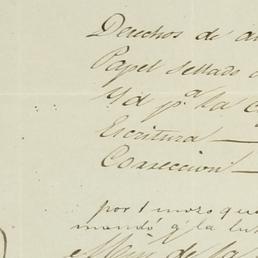 Derechos de
Papel sellado
Yd pª la
Escritura —
Correccion —
por 1 mozo que
mandó
de la